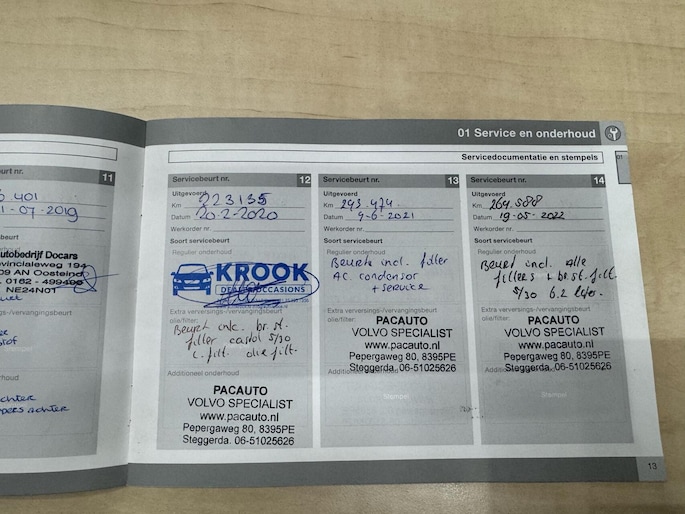 01 Service en onderhoud
Servicedocumentatie en stempels
01
eurt nr. 11
401
1-07-2019
cebeurt
utobedrijf Docars
ovincialeweg 194
09 AN Oostein
0162 - 499400
NE24N01
g-/vervangingsbeurt
houd
achter
Servicebeurt nr. 12
Uitgevoerd
Km 223135
Datum 20-2-2020
Werkorder nr.
Soort servicebeurt
Regulier onderhoud
KROOK
OCCASIONS
Extra verversings-/vervangingsbeurt
olie/filter:
Beurt inc. br.st.
filter castol 5/30
i. filt. olie filt.
Additioneel onderhoud
PACAUTO
VOLVO SPECIALIST
www.pacauto.nl
Pepergaweg 80, 8395PE
Steggerda. 06-51025626
Servicebeurt nr. 13
Uitgevoerd
Km 243.474
Datum 9-6-2021
Werkorder nr.
Soort servicebeurt
Regulier onderhoud
Beurt incl. filter
AC. condensor
+ service
Extra verversings-/vervangingsbeurt
olie/filter:
PACAUTO
VOLVO SPECIALIST
www.pacauto.nl
Pepergaweg 80, 8395PE
Steggerda. 06-51025626
Additioneel onderhoud
Stempel
Servicebeurt nr. 14
Uitgevoerd
Km 264.588
Datum 19-05-2022
Werkorder nr.
Soort servicebeurt
Regulier onderhoud
Beurt incl. alle
filters + br.st. filt.
5/30 6.2 liter.
Extra verversings-/vervangingsbeurt
olie/filter:
PACAUTO
VOLVO SPECIALIST
www.pacauto.nl
Pepergaweg 80, 8395PE
Steggerda. 06-51025626
Additioneel onderhoud
Stempel
13